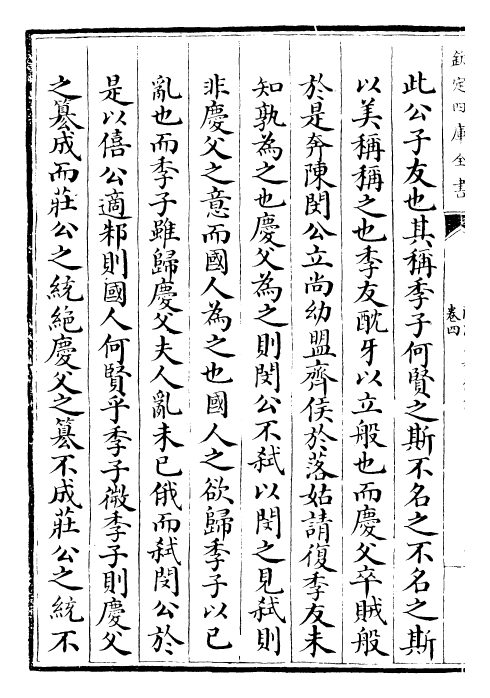 欽定四庫全書
卷四
此公子友也其稱季子何賢之斯不名之不名之斯
以美稱稱之也季友酖牙以立般也而慶父卒賊般
於是奔陳閔公立尚幼盟齊侯於落姑請復季友未
知孰為之也慶父為之則閔公不弑以閔之見弑則
非慶父之意而國人為之也國人之欲歸季子以已
亂也而季子雖歸慶父夫人亂未已俄而弑閔公於
是以僖公適邾則國人何賢乎季子微季子則慶父
之簒成而莊公之統絶慶父之簒不成莊公之統不